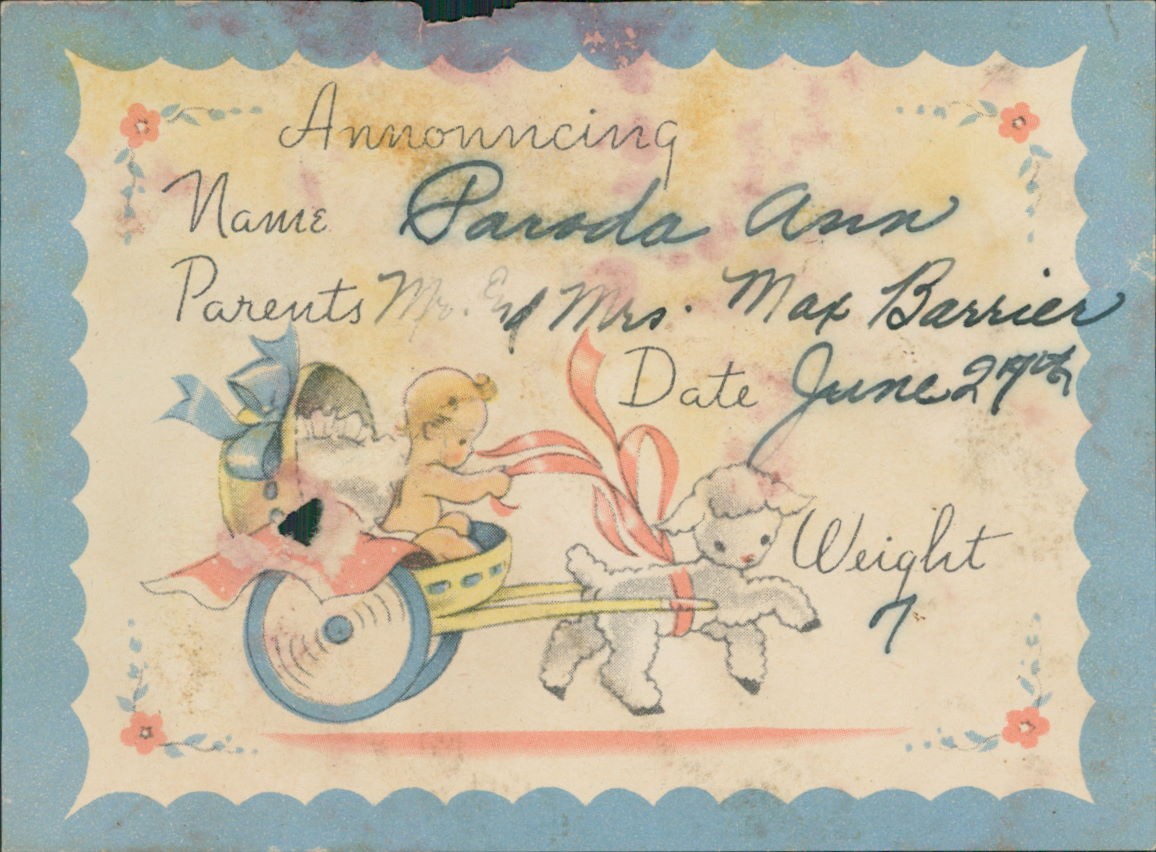 Announcing
Name Paroda Ann
Parents Mr. and Mrs. Max Barrier
Date June 27th
Weight
7